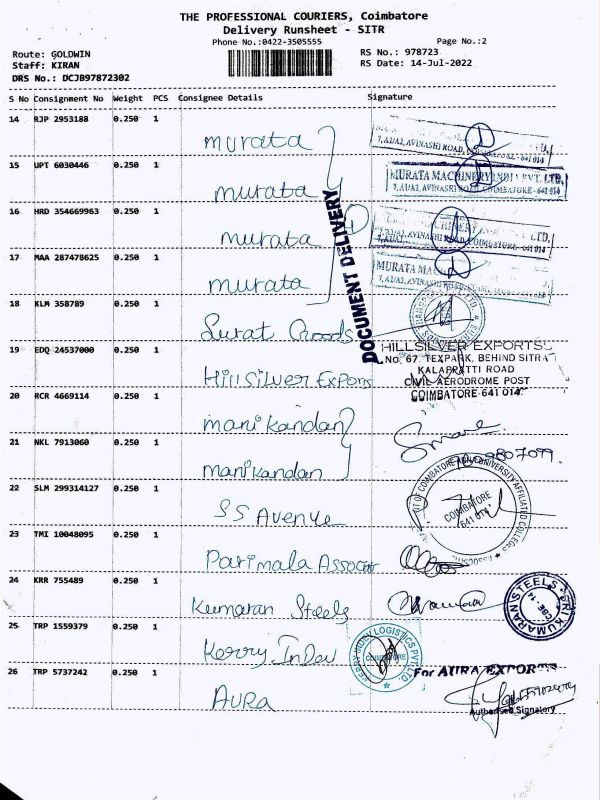 THE PROFESSIONAL COURIERS, Coimbatore
Delivery Runsheet - SITR
Phone No.:0422-3505555
Page No.:2
Route: GOLDWIN
RS No.: 978723
Staff: KIRAN
RS Date: 14-Jul-2022
DRS No.: DCJB97872302
S No Consignment No Weight PCS Consignee Details Signature
14 RJP 2953188 0.250 1
murata
7, AUA2, AVINASHI ROAD, - 641 014
15 UPT 6030446 0.250 1
murata
MURATA MACHINERY INDIA PVT. LTD.
7, AUA2, AVINASHI ROAD, COIMBATORE - 641 014
16 HRD 354669963 0.250 1
murata
AVINASHI ROAD, COIMBATORE - 641 014
17 MAA 287478625 0.250 1
murata
MURATA
7, AUA2, AVINASHI ROAD
DOCUMENT DELIVERY
18 KLM 358789 0.250 1
Surat Goods
19 EDQ 24537000 0.250 1
Hillsilver Exports
HILLSILVER EXPORTS
No. 67, TEXPARK, BEHIND SITRA
KALAPATTI ROAD
CIVIL AERODROME POST
COIMBATORE-641 014.
20 RCR 4669114 0.250 1
manikandan
21 NKL 7913060 0.250 1
manikandan
9807099.
22 SLM 299314127 0.250 1
SS Avenue
COIMBATORE ANNA UNIVERSITY AFFILIATED COLLEGES
COIMBATORE
641 014
23 TMI 10048095 0.250 1
Parimala Associat
24 KRR 755489 0.250 1
Kumaran Steels
SRI KUMARAN STEELS
CBE 14
25 TRP 1559379 0.250 1
Kerry Indev
KERRY INDEV LOGISTICS PVT LTD
26 TRP 5737242 0.250 1
AURA
For AURA EXPORTS
Authorised Signatory